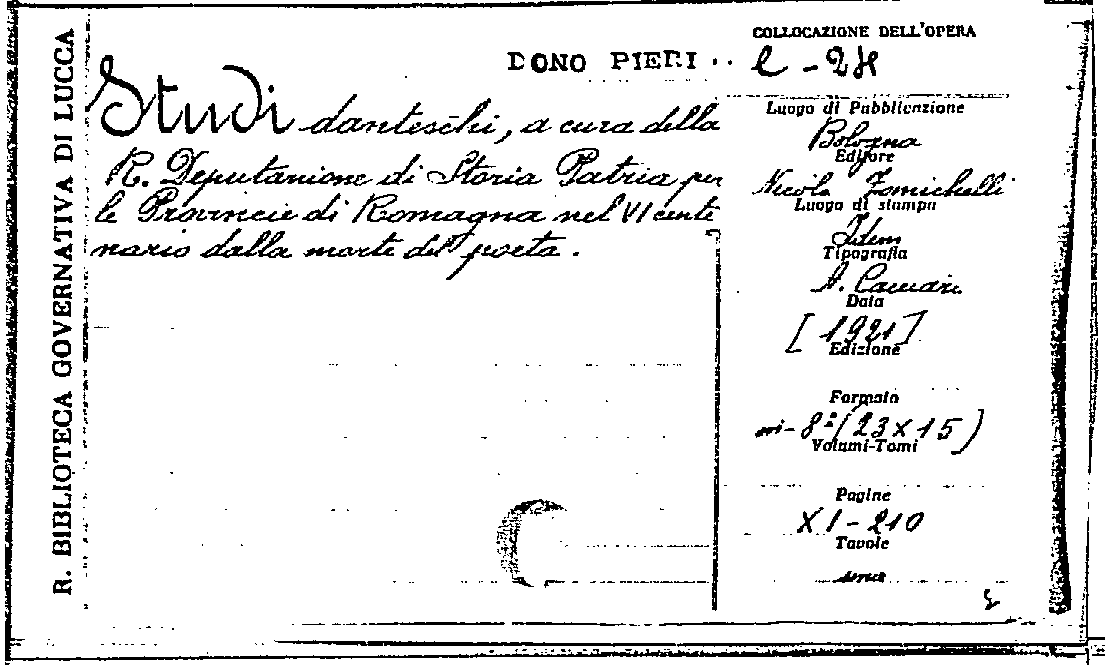 R. BIBLIOTECA GOVERNATIVA DI LUCCA
DONO PIERI
Studi danteschi, a cura della
R. Deputazione di Storia Patria per
le Provincie di Romagna nel VI cente
nario dalla morte del poeta.
COLLOCAZIONE DELL'OPERA
Luogo di Pubblicazione
Bologna
Editore
Nicola Zanichelli
Luogo di stampa
Idem
Tipografia
A. Cacciari
Data
[1921]
Edizione
Formato
in-8º (23 X 15)
Volumi-Tomi
Pagine
XI-210
Tavole
una